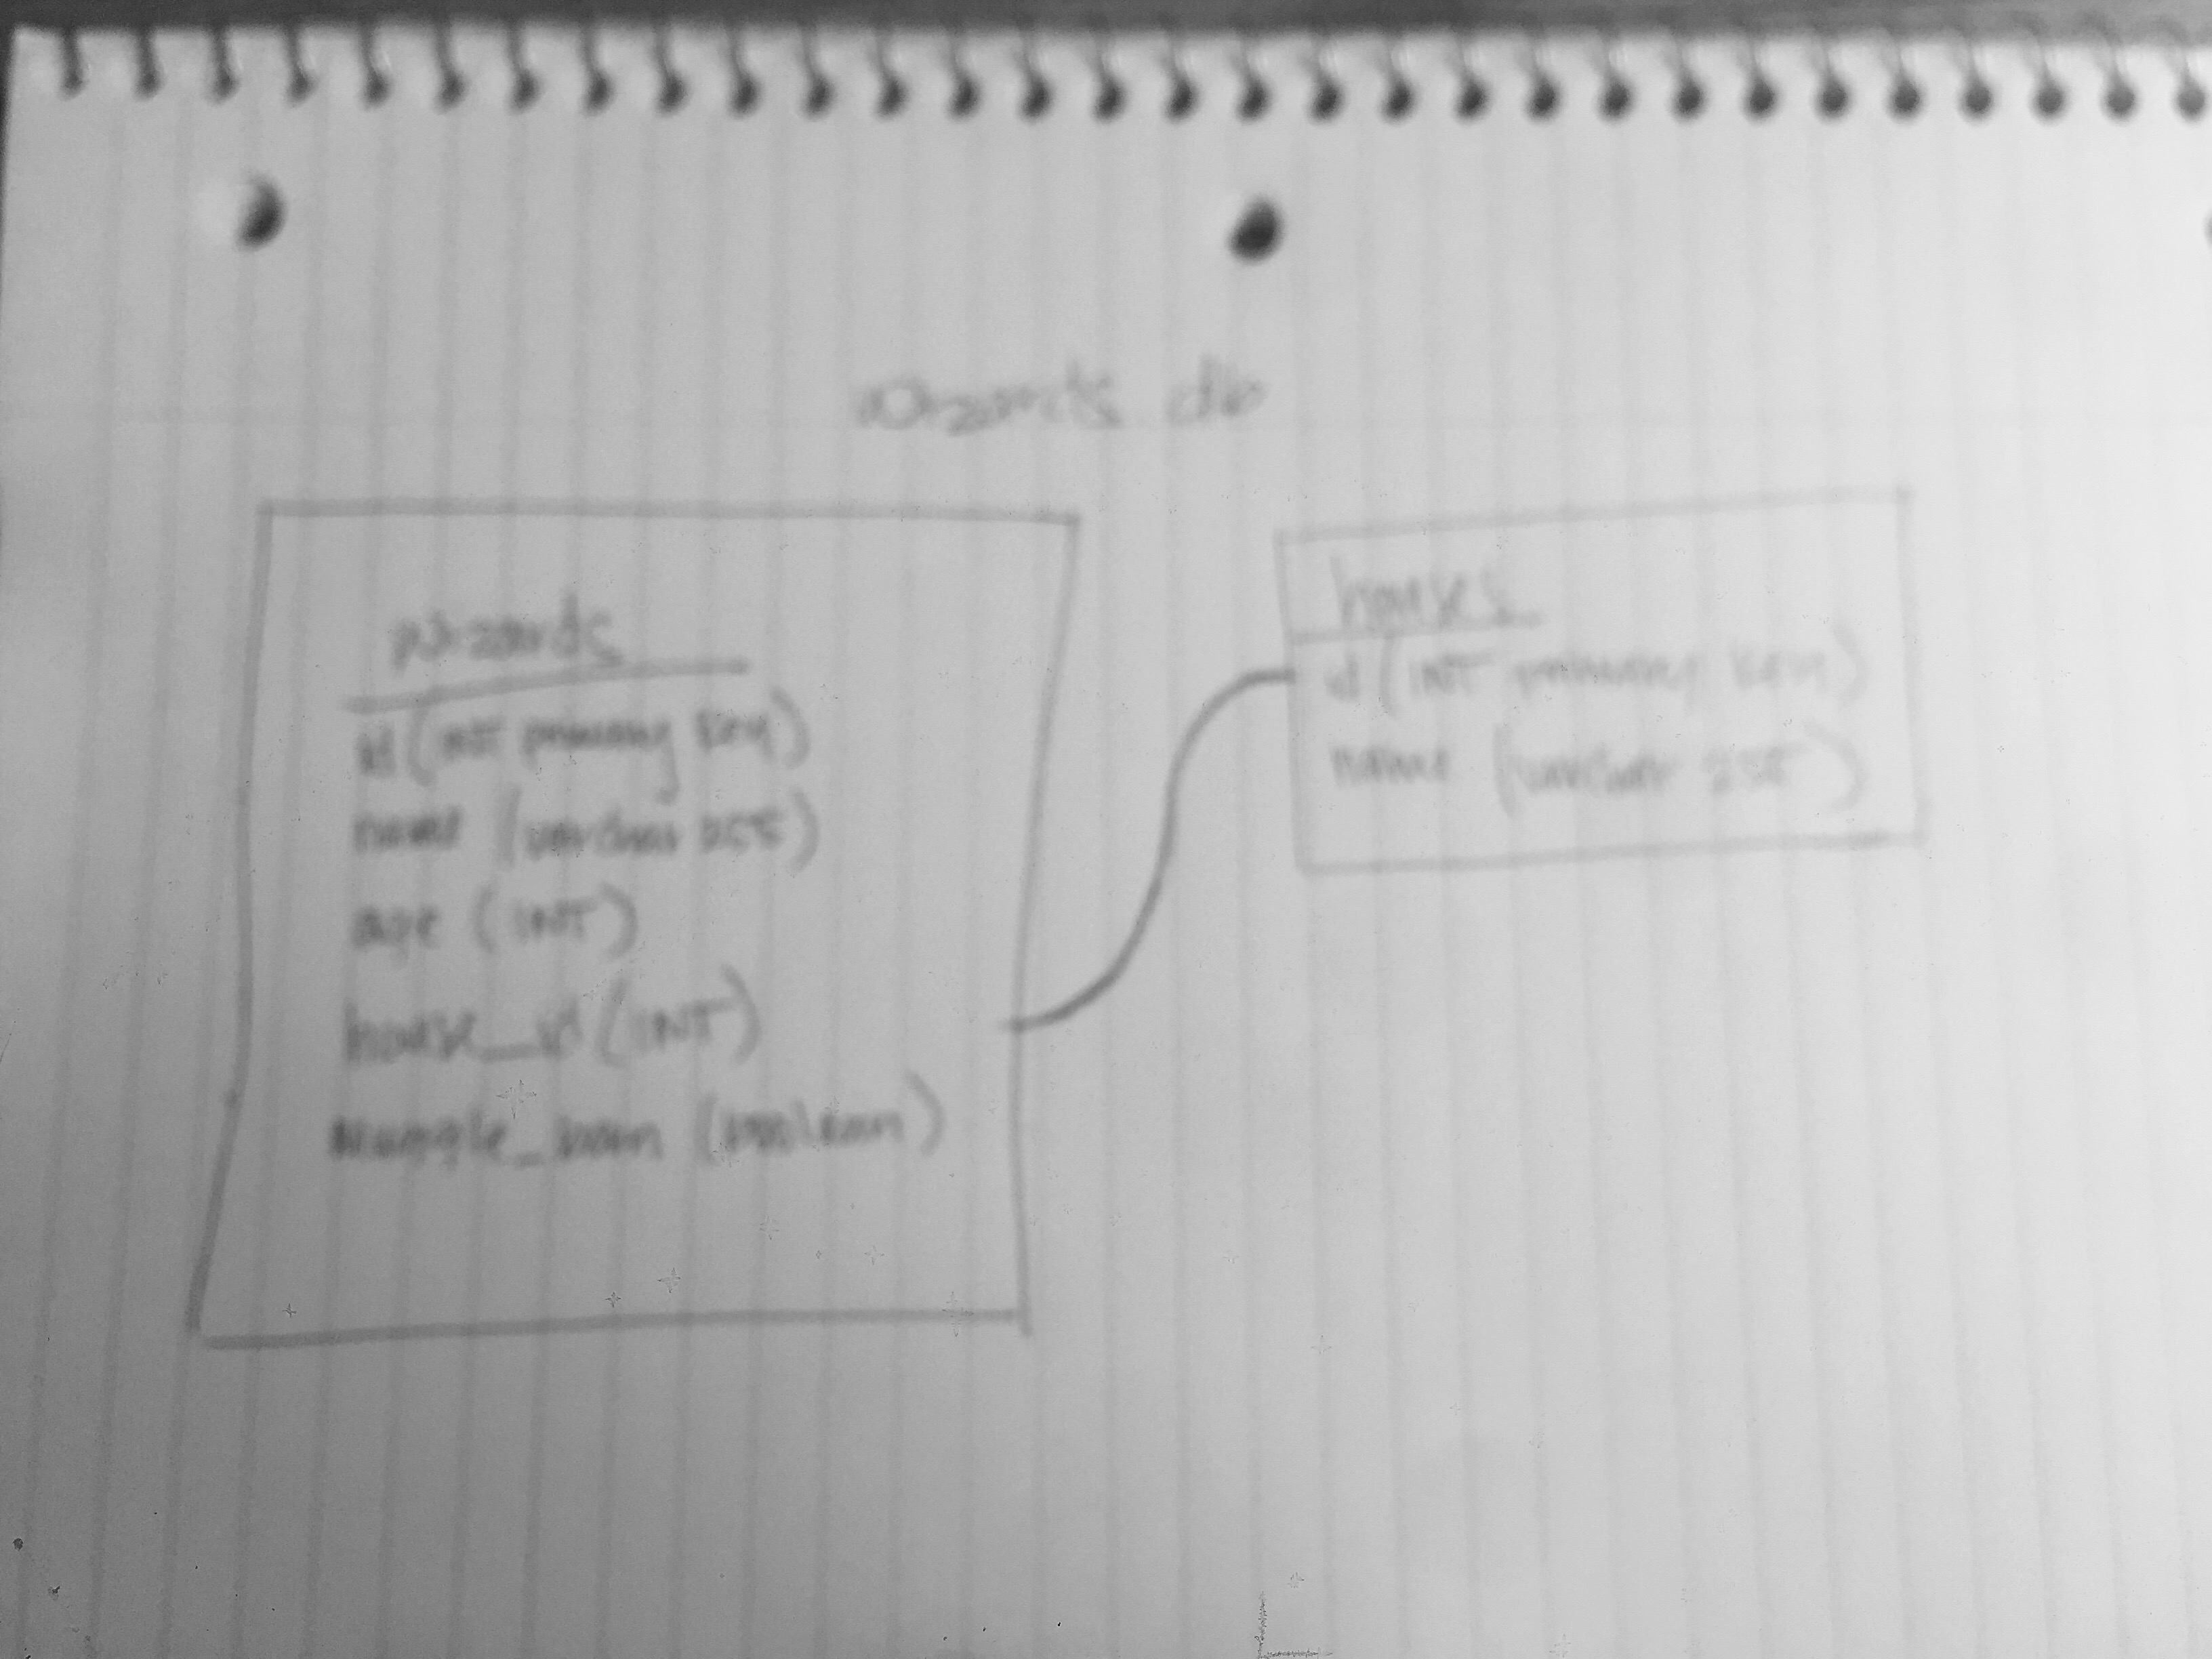 wizards db
wizards
id (INT primary key)
name (varchar 255)
age (INT)
house_id (INT)
muggle_born (boolean)
houses
id (INT primary key)
name (varchar 255)